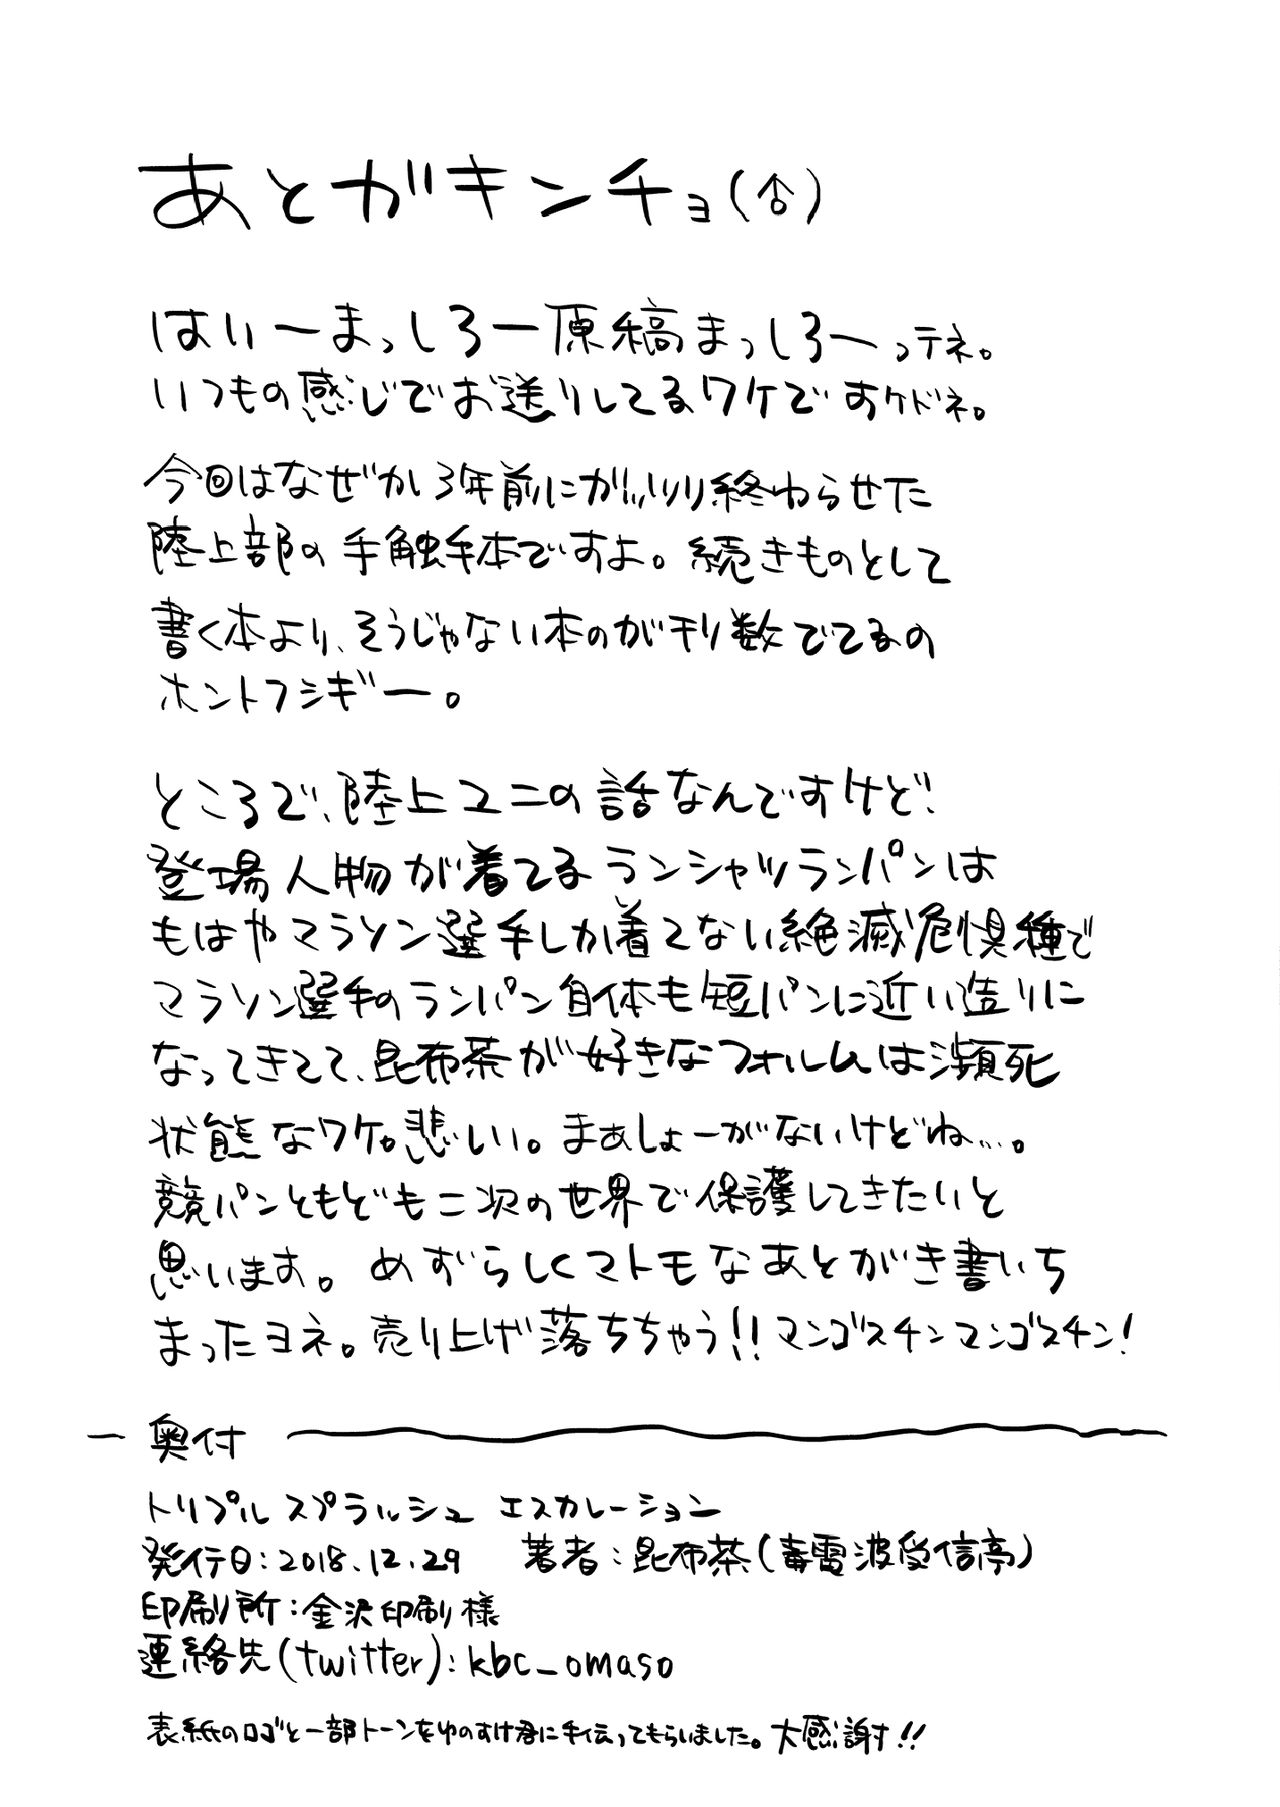 あとがキンチョ(合)
はいーまっしろー原稿まっしろーってネ。
いつもの感じでお送りしてるワケですケドネ。
今回はなぜか3年前にガッツリ終わらせた
陸上部の手触手本ですよ。続きものとして
書く本より、そうじゃない本のが刊数でてるの
ホントフシギー。
ところで、陸上ユニの話なんですけど!
登場人物が着てるランシャツランパンは
もはやマラソン選手しか着てない絶滅危惧種で
マラソン選手のランパン自体も短パンに近い造りに
なってきてて、昆布茶が好きなフォルムは瀕死
状態なワケ。悲しい。まぁしょーがないけどね…。
競パンともども二次の世界で保護してきたいと
思います。めずらしくマトモなあとがき書いち
まったヨネ。売り上げ落ちちゃう!!マンゴスチンマンゴスチン!
ー 奥付
トリプルスプラッシュ エスカレーション
発行日:2018.12.29 著者:昆布茶(毒電波受信亭)
印刷所:金沢印刷様
連絡先(twitter):kbc_omaso
表紙のロゴと一部トーンをゆのすけ君に手伝ってもらいました。大感謝!!